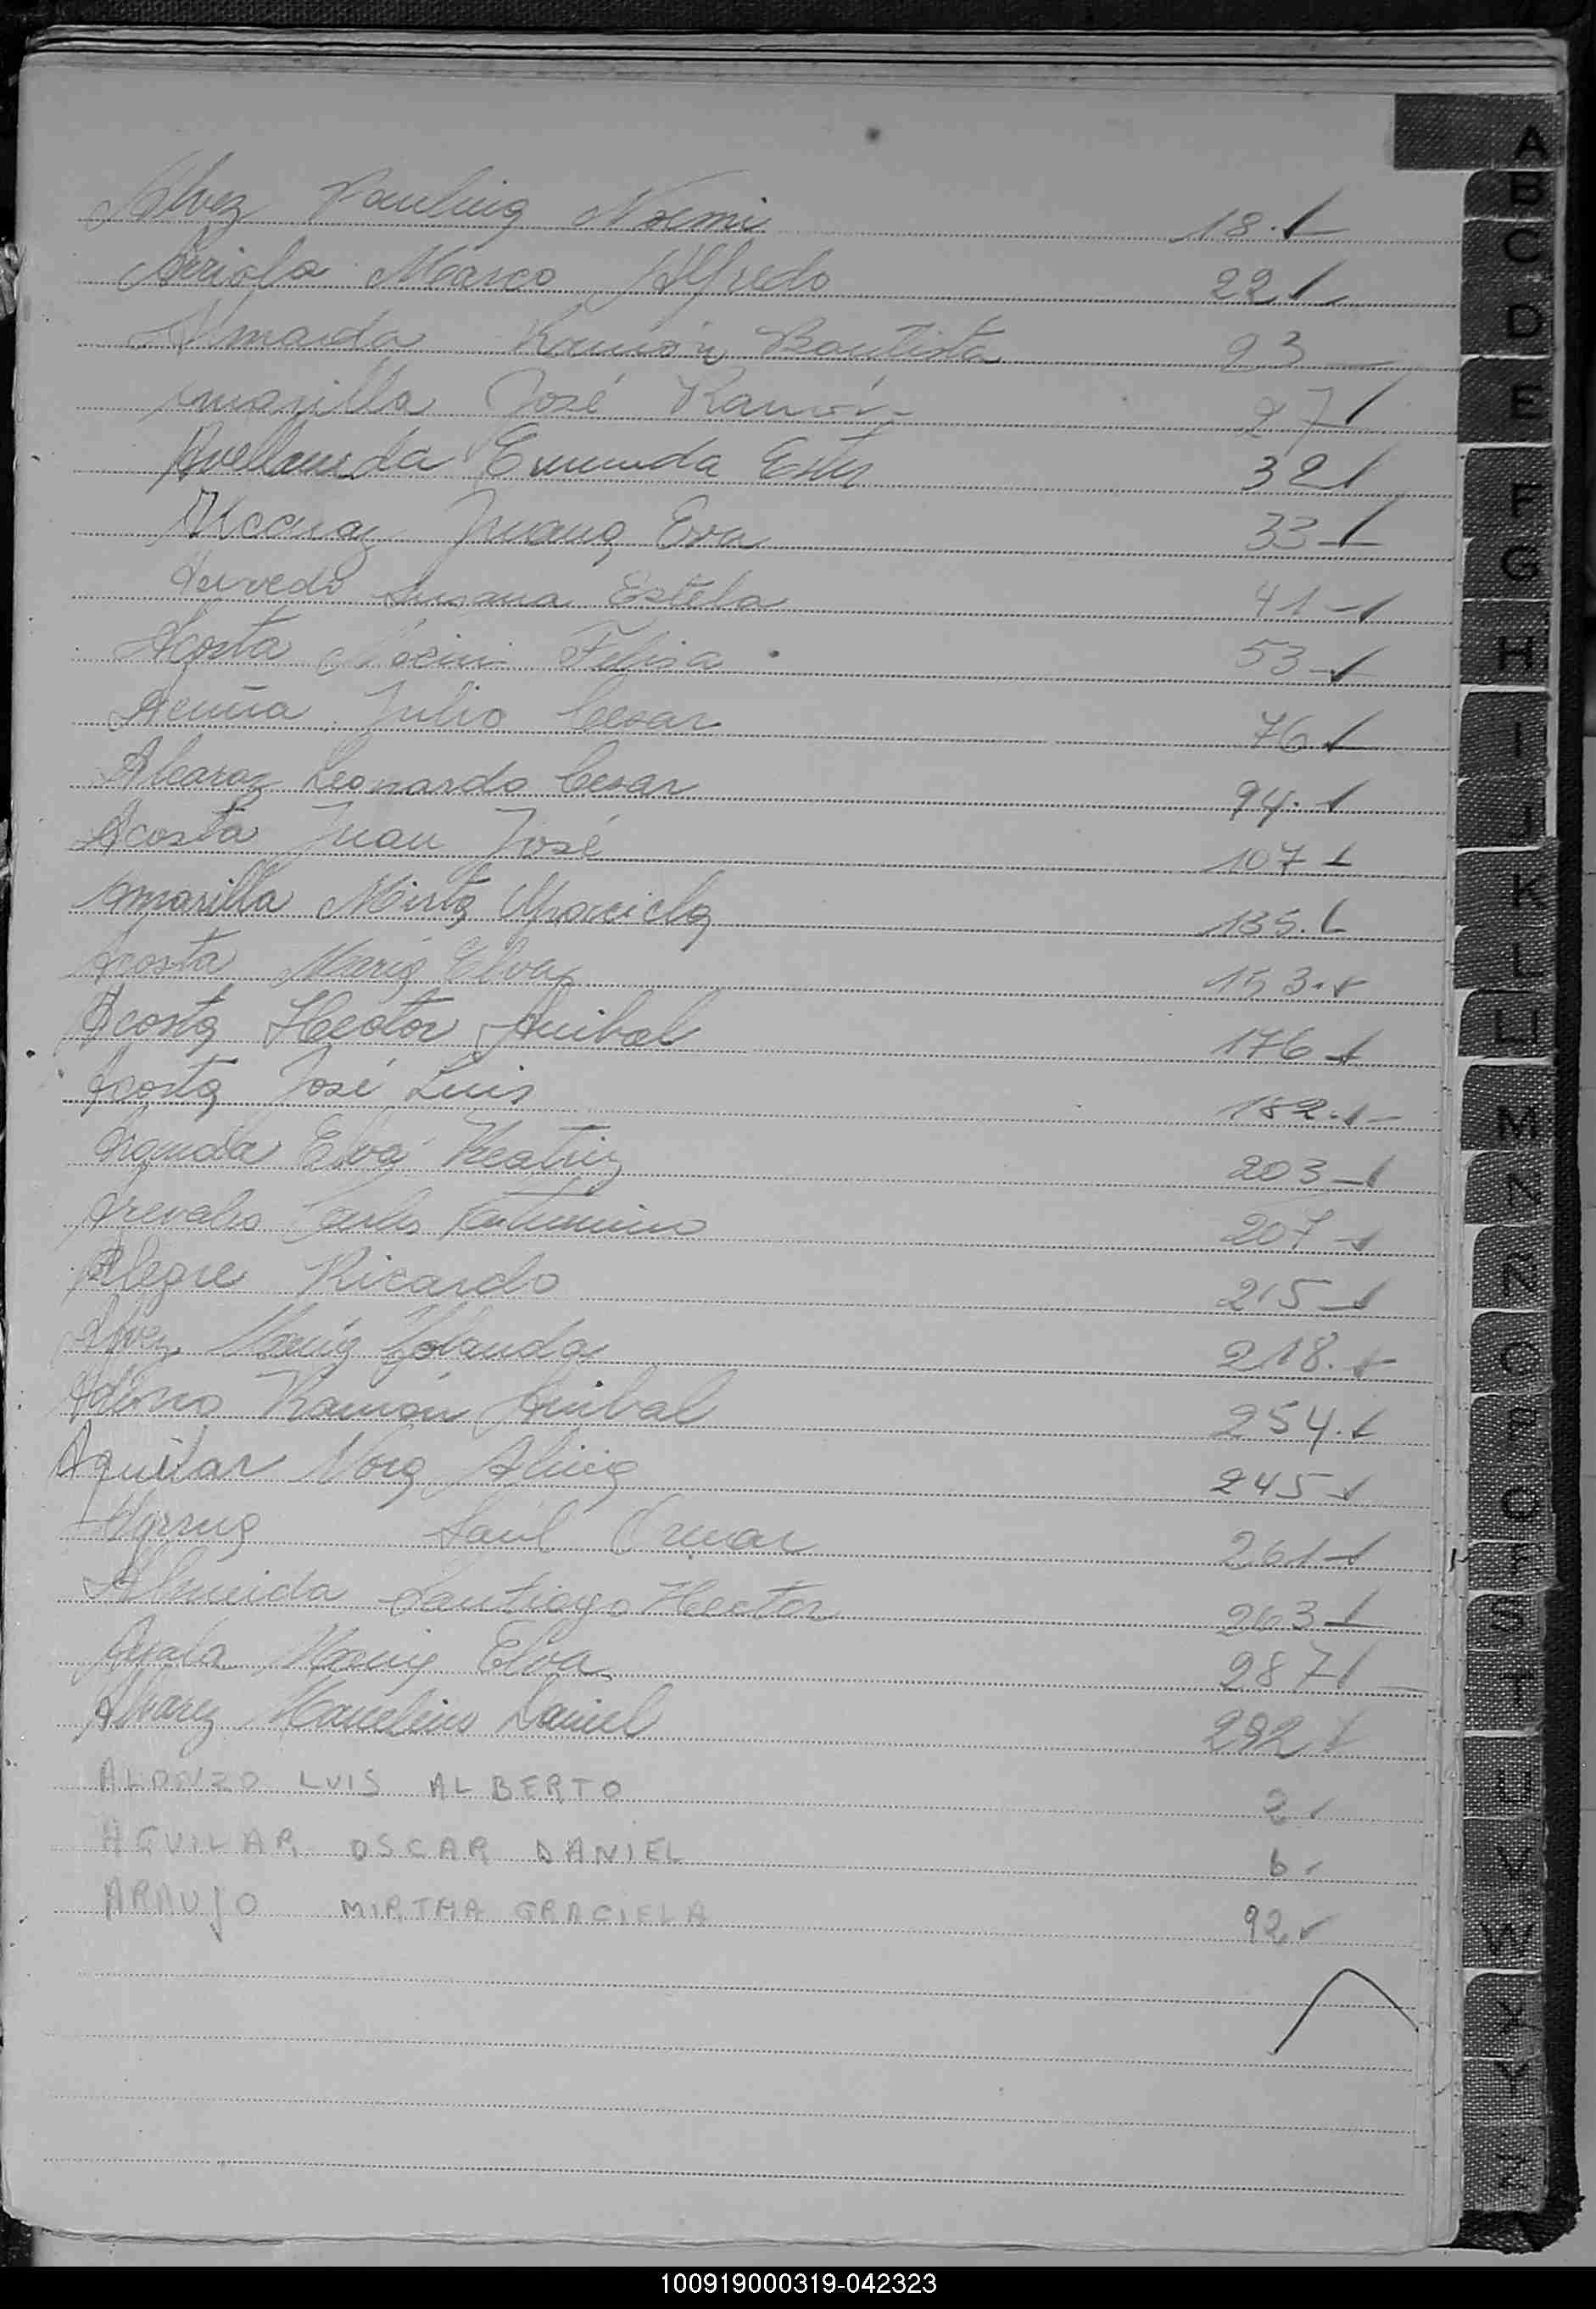 Alvez Paulina Noemi 18.
Arriola Marco Alfredo 22
Almaida Ramón Bautista 23
Amarilla José Ramón 27
Avellaneda Ester 32
Alcaraz Juana Eva 33
Acevedo Susana Estela 41
Acosta Felisa 53
Acuña Julio Cesar 76
Alcaraz Leonardo Cesar 94.
Acosta Juan José 107
Amarilla Mirta 135.
Acosta Maria Elva 153.
Acosta Hector Anibal 176
Acosta José Luis 182.
Aranda Elva Beatriz 203
Arevalo Carlos 207
Alegre Ricardo 215
Alvez Maria Yolanda 218.
Ramón Anibal 254.
Aguilar Alicia 245
Saúl Omar 261
Almeida Santiago Hector 263
Ayala Maria Elva 287
Alvarez Marcelino Daniel 292
ALONZO LUIS ALBERTO 2
AGUILAR OSCAR DANIEL 6
ARAUJO MIRTHA GRACIELA 92
A
B
C
D
E
F
G
H
I
J
K
L
LL
M
N
Ñ
O
P
Q
R
S
T
U
V
W
X
Y
Z
100919000319-042323